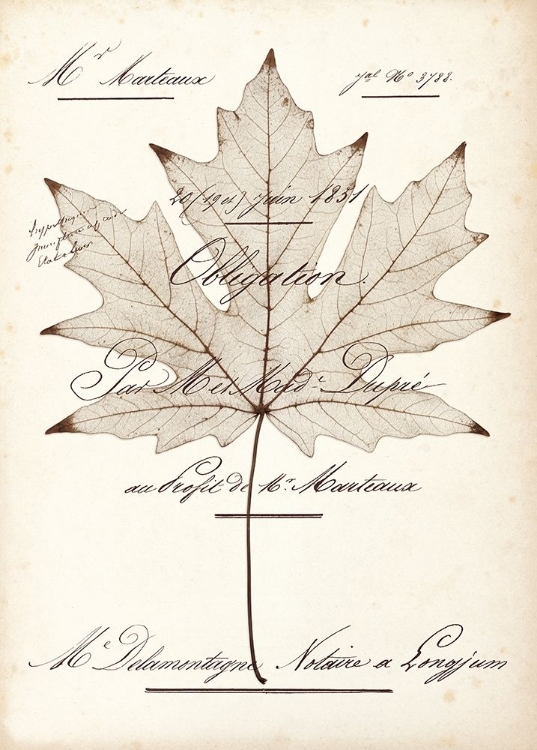 Mr Marteaux
Jal No 3788.
20 (19 et) Juin 1831
Obligation.
Par M et Made Dupré
au Profit de Mr Marteaux
Me Delamontagne Notaire a Longjum